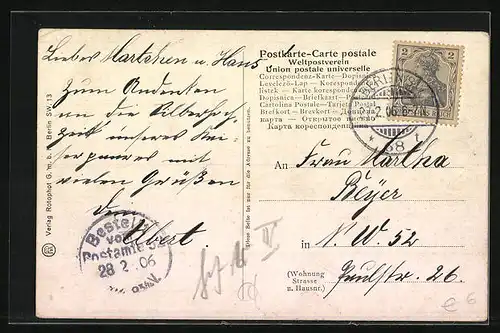 Postkarte-Carte postale
Weltpostverein
Union postale universelle
Correspondenz-Karte — Dopisnice
Levelező-Lap — Korespondenční
lístek — Karta korespondencyjna
Dopisnica — Briefkart
Cartolina Postale — Tarjeta Postal
Brefkort — Brevkort
Карта корреспонденціи
2 2
BERLIN
2.06.
68
Liebes Martchen u. Hans
Zum Andenken
an die Silberhoch-
zeit unseres Kai-
serpaares mit
vielen Grüßen
Albert.
An Frau Martha
Beyer
in N.W. 52
(Wohnung Strasse u. Hausnr.) Paulstr. 26.
Bestellt
vom
Postamte
28 2.06
Verlag Rotophot G. m. b. H. Berlin SW. 13
Diese Seite ist nur für die Adresse zu benutzen.
€ 6